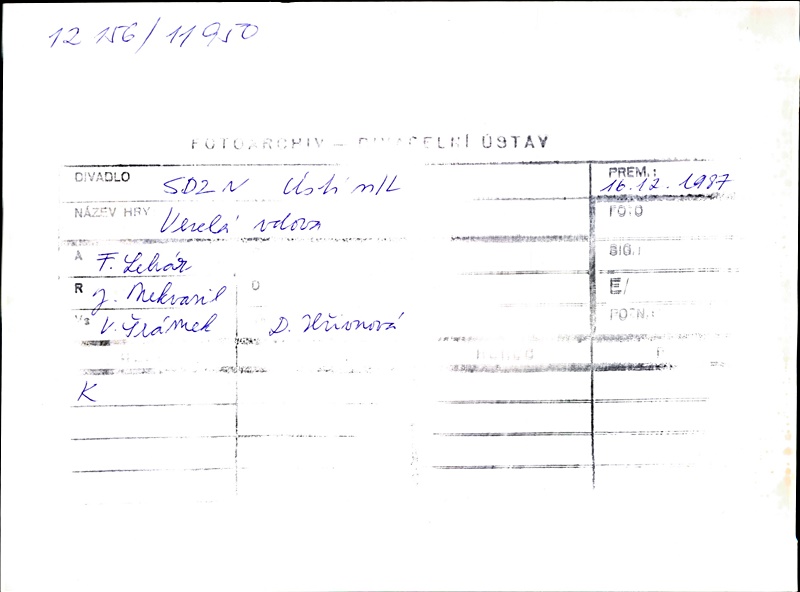 12 156/11950
FOTOARCHIV — DIVADELNÍ ÚSTAV
DIVADLO SDZN Ústí n/L PREM.: 16.12.1987
NÁZEV HRY Veselá vdova FOTO
A F. Lehár SIG.:
R J. Nekvasil E/
V. Šrámek D. Hřivnová POZN.:
K